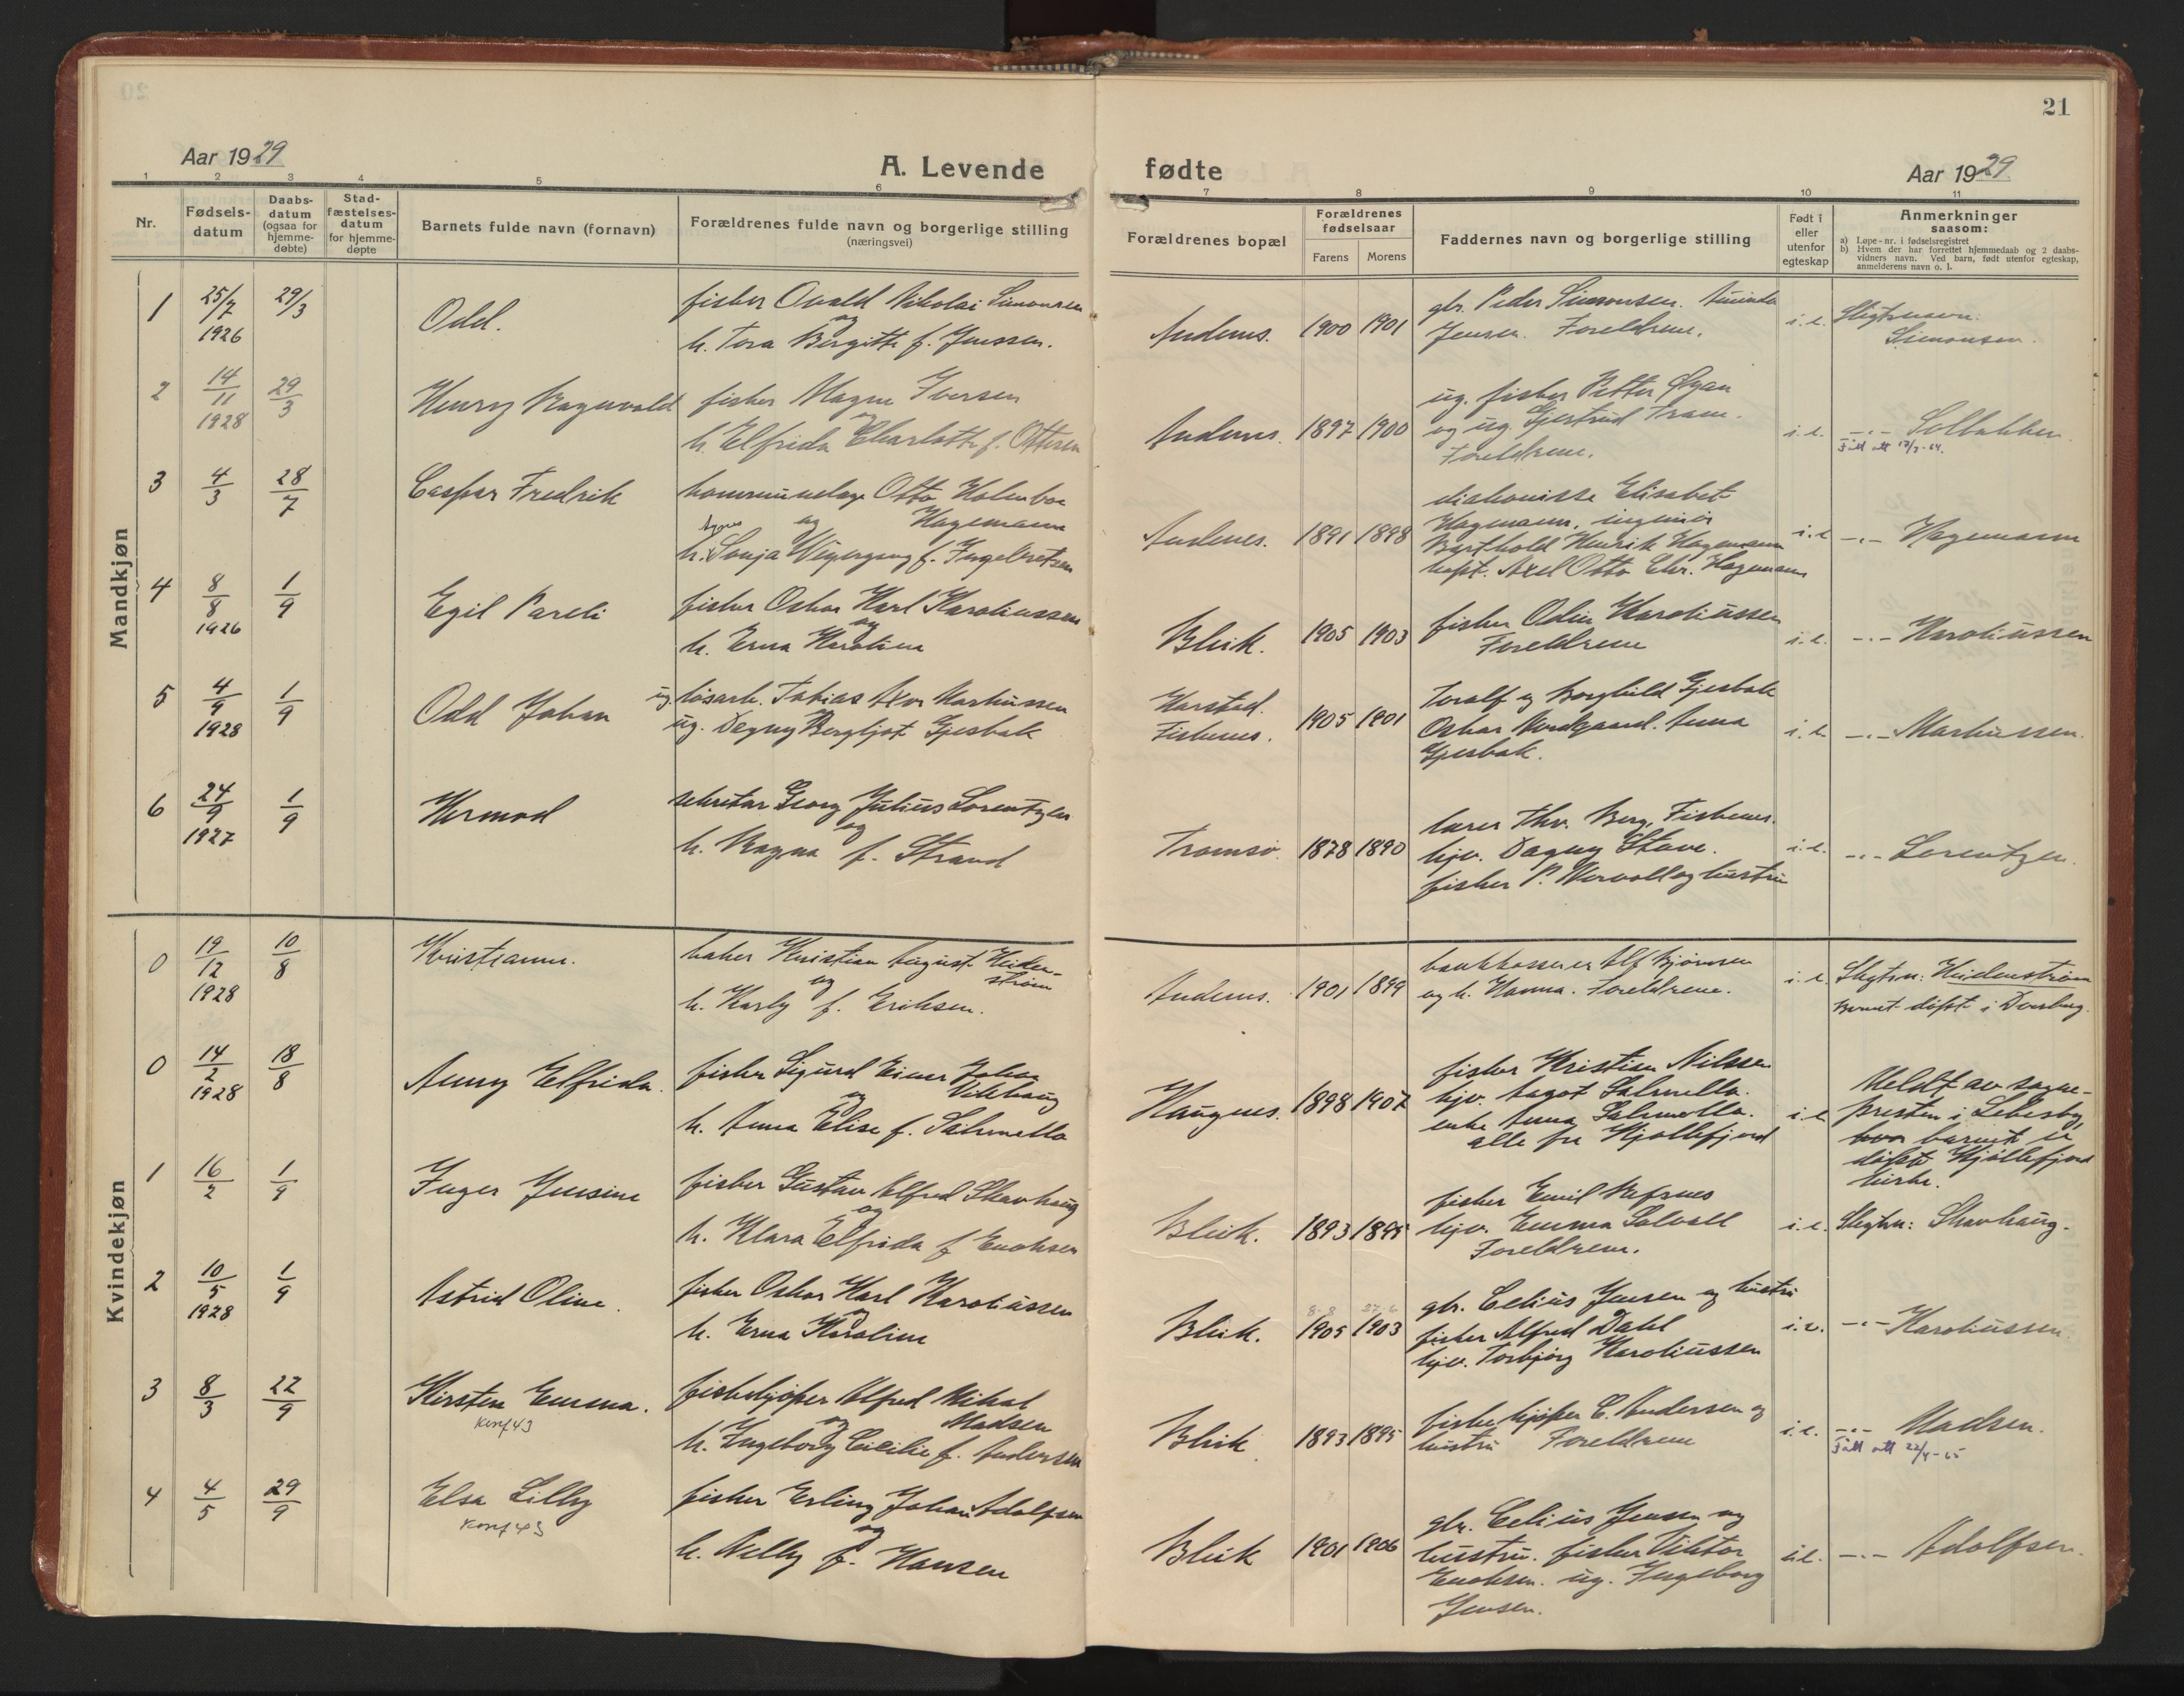 20
21
Aar 1929
A. Levende
fødte
Aar 1929
1 2 3 4 5 6 7 8 9 10 11
Nr.
Fødsels-
datum
Daabs-
datum
(ogsaa for
hjemme-
døbte)
Stad-
fæstelses-
datum
for hjemme-
døpte
Barnets fulde navn (fornavn)
Forældrenes fulde navn og borgerlige stilling
(næringsvei)
Forældrenes bopæl
Forældrenes
fødselsaar
Farens Morens
Faddernes navn og borgerlige stilling
Født i
eller
utenfor
egteskap
Anmerkninger
saasom:
a) Løpe-nr. i fødselsregistret
b) Hvem der har forrettet hjemmedaab og 2 daabs-
vidners navn. Ved barn, født utenfor egteskap,
anmelderens navn o. l.
Mandkjøn
1 25/7 1926 29/3
Odd.
fisker Osvald Nikolai Simonsen
og
h. Tora Bergitte f. Jenssen.
Andenes. 1900 1901
gbr. Peder Simonsen.
Jensen. Foreldrene.
i.e. Slegtsnavn:
Simonsen.
2 14/11 1928 29/3
Henry Ragnvald
fisker Magne Iversen
og
h. Elfrida Charlotte f. Ottesen
Andenes. 1897 1900
ug. fisker Petter Øyan
og ug. Gjertrud Trane.
Foreldrene.
i.e. -"- Solbakken.
Fått att 17/3-64.
3 4/3 28/7
Caspar Fredrik
kommunelæge Otto Holmboe
og Hagemann
Agnes
h. Sonja f. Ingebretsen
Andenes. 1891 1898
diakonisse Elisabet
Hagemann, ingeniør
Barthold Henrik Hagemann
kapt. Axel Otto Chr. Hagemann
i.e -"- Hagemann
4 8/8 1926 1/9
Egil Pareli
fisker Oskar Karl Karoliussen
og
h. Erna Karoline
Bleik. 1905 1903
fisker Odin Karoliussen
Foreldrene
i.e. -"- Karoliussen
5 4/9 1928 1/9
Odd Johan
ug. løsarb. Tobias Markussen
ug. Dagny Bergljot Gjesbak
Harstad.
Fiskenes. 1905 1901
Toralf og Borghild Gjesbak
Oskar Nordgaard. Anna
Gjesbak.
i.e. -"- Markussen.
6 24/9 1927 1/9
Hermod
sekretær Georg Julius Lorentzen
og
h. Ragna f. Strand
Tromsø. 1878 1890
lærer Thv. Berg, Fiskenes.
hjv. Dagny Stave.
fisker P. Nervoll og hustru
i.e. -"- Lorentzen.
Kvindekjøn
0 19/12 1928 10/8
Kristianne.
baker Kristian August Heiden-
og strøm
h. Karly f. Eriksen.
Andenes. 1901 1899
bankkasserer Alf Bjørnsen
og h. Hanna. Foreldrene.
i.e. Slegtsn: Heidenstrøm
Barnet døpt i Dverberg.
0 14/2 1928 18/8
Anny Elfrida.
fisker Sigurd Einar Johan
og Vikhaug
h. Anna Elise f. Salmella
Haugnes. 1898 1907
fisker Kristian Nilssen
hjv. Aagot Salmella.
enke Anna Salmella.
alle fra Kjøllefjord
i.e Meldt av sogne-
presten i Lebesby,
hvor barnet er
døpt i Kjøllefjord
kirke.
1 16/2 1/9
Inger Jensine
fisker Gustav Alfred Skavhaug
og
h. Klara Elfrida f. Enoksen
Bleik. 1893 1895
fisker Emil Refsnes
hjv. Emma Solvoll
Foreldrene.
i.e. Slegtsn: Skavhaug.
2 10/5 1928 1/9
Astrid Oline.
fisker Oskar Karl Karoliussen
og
h. Erna Karoline
8-8 27-6
Bleik. 1905 1903
gbr. Celius Jensen og hustru
fisker Alfred Dahl
hjv. Torbjørg Karoliussen
i.e. -"- Karoliussen
3 8/3 22/9
Kirsten Emma.
Konf 43
fiskekjøper Alfred Mikal
og Madsen
h. Ingeborg Cicilie f. Andersen
Bleik 1893 1895
fiskekjøper C. Andersen og
hustru Foreldrene
i.e. -"- Madsen.
Fått att 22/4-65
4 4/5 29/9
Elsa Lilly
Konf 43
fisker Erling Johan Adolfsen
og
h. Nelly f. Hansen
Bleik 1901 1906
gbr. Celius Jensen og
hustru. fisker Viktor
Enoksen. ug. Ingeborg
Jensen.
i.e. -"- Adolfsen.